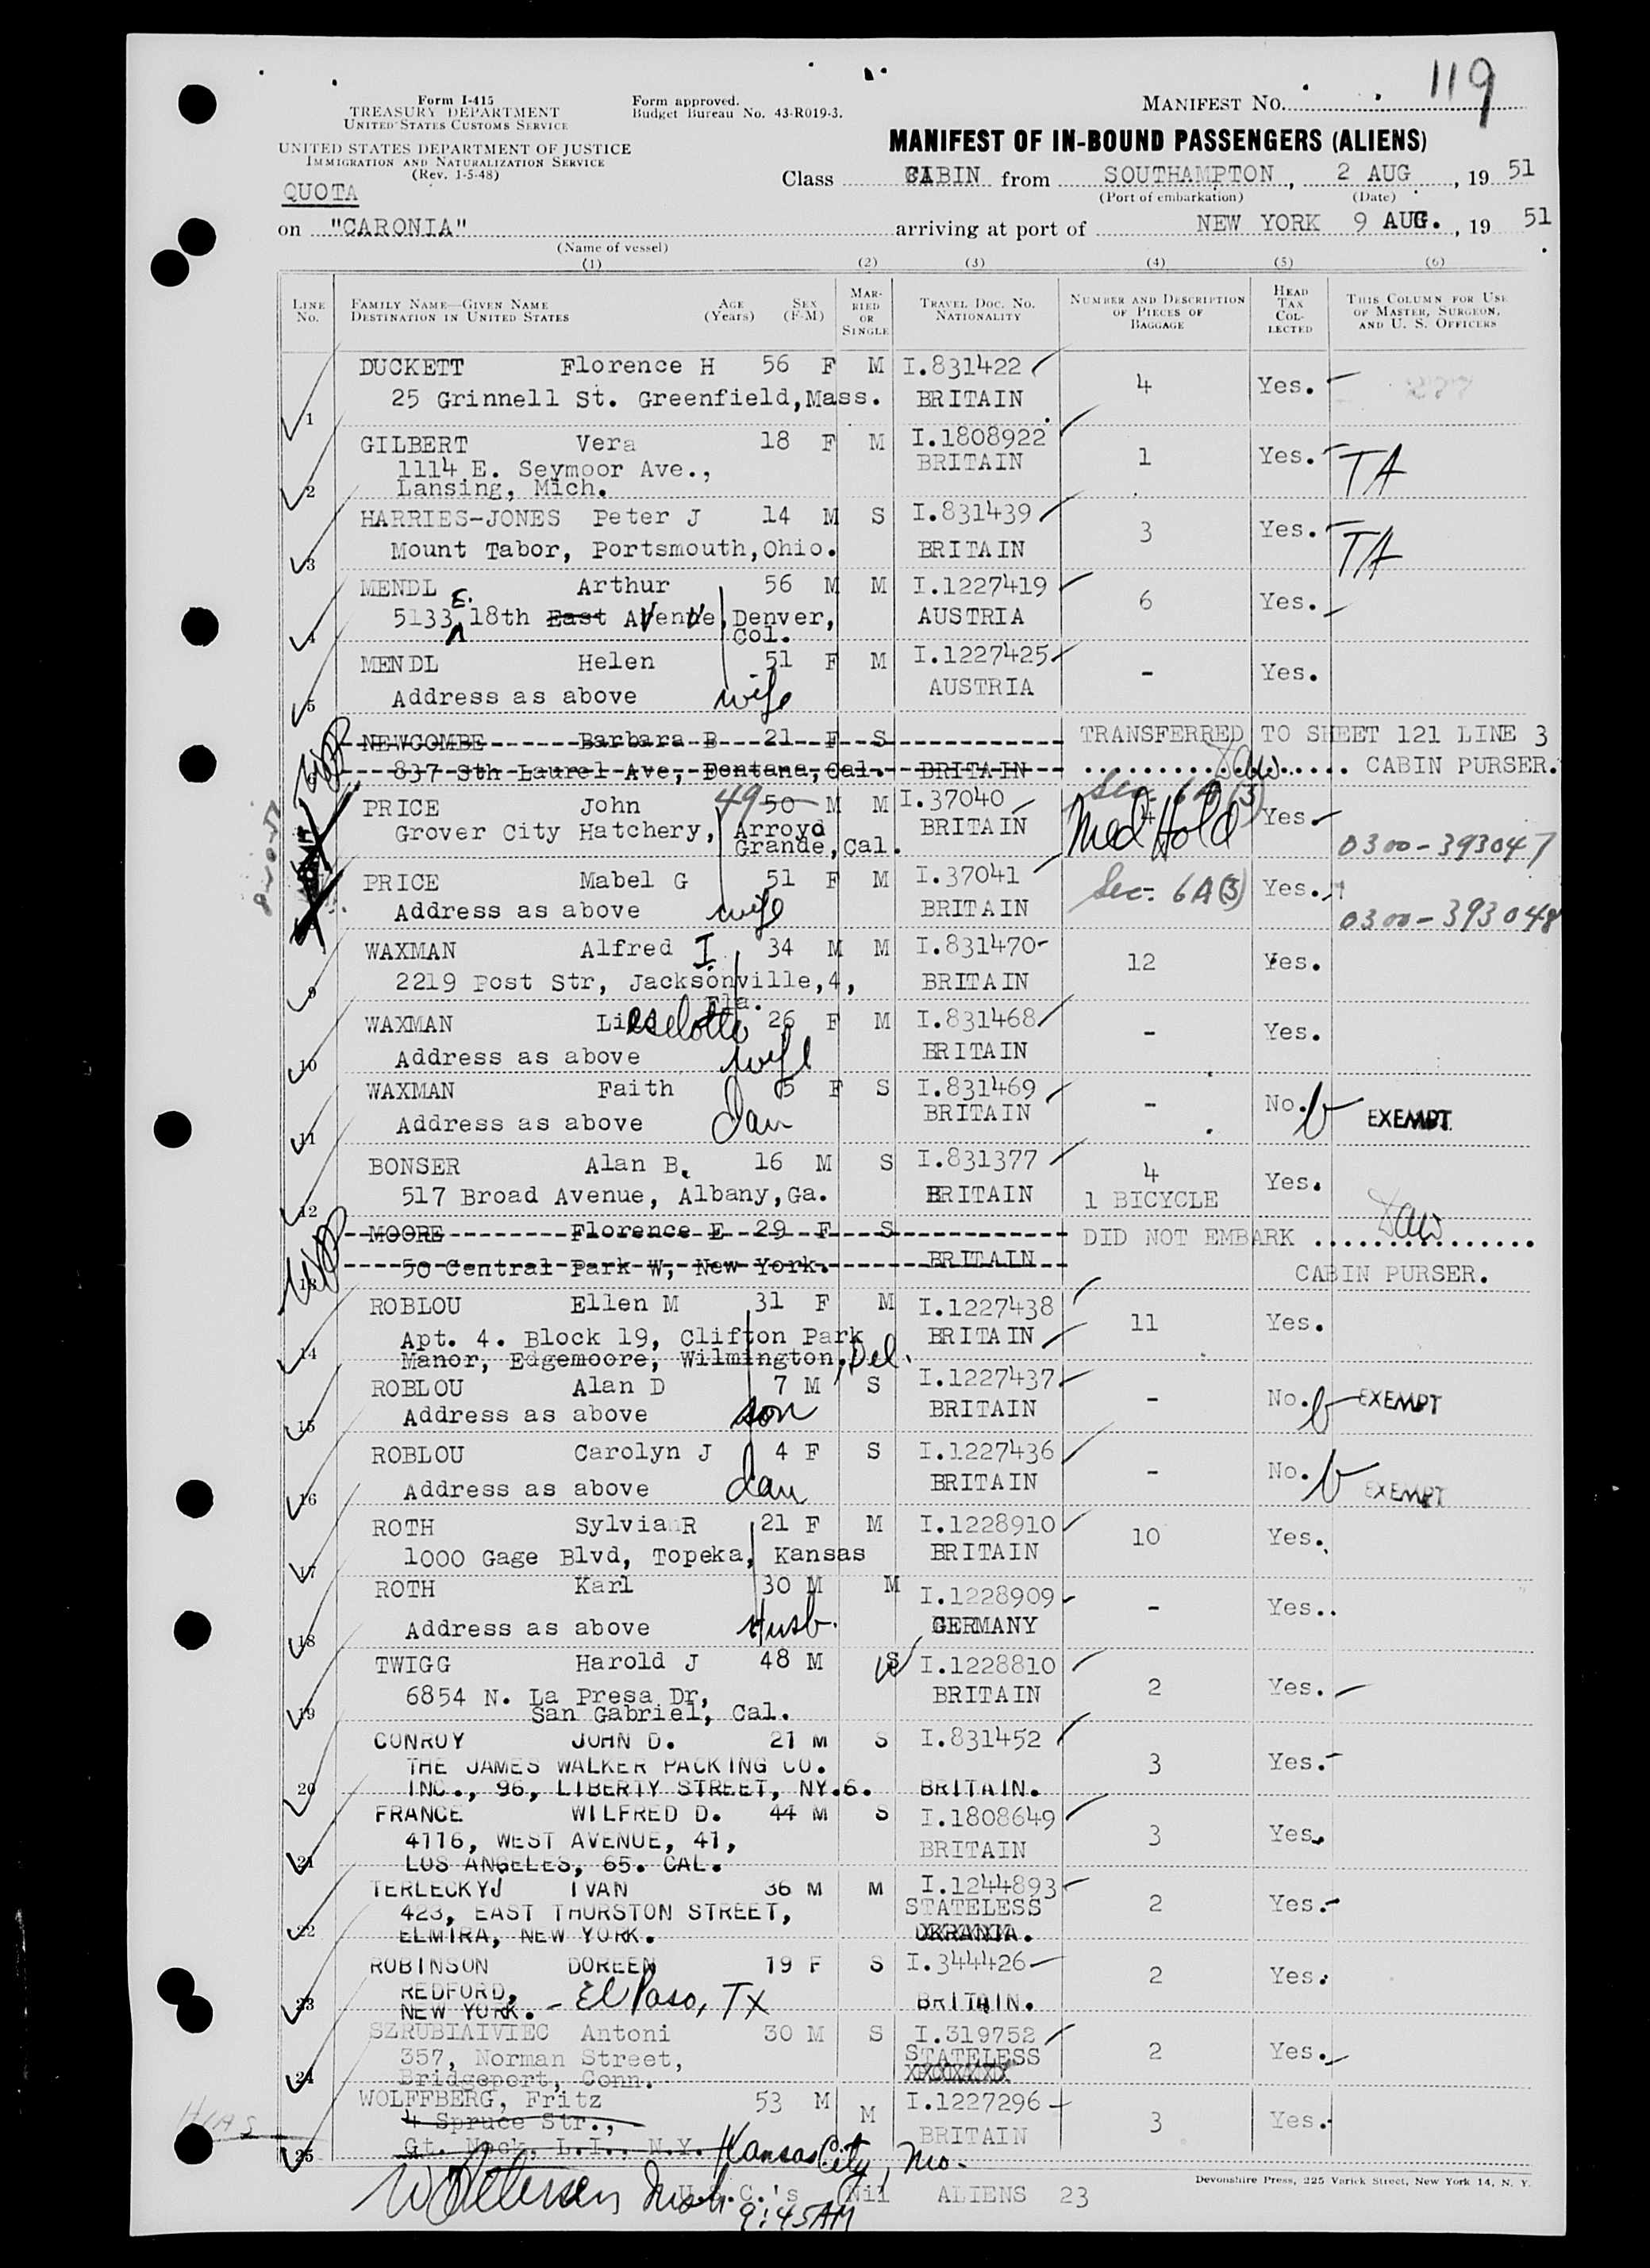 119
Form I-415
TREASURY DEPARTMENT
UNITED STATES CUSTOMS SERVICE
Form approved.
Budget Bureau No. 43-R019-3.
MANIFEST NO.
UNITED STATES DEPARTMENT OF JUSTICE
IMMIGRATION AND NATURALIZATION SERVICE
(Rev. 1-5-48)
MANIFEST OF IN-BOUND PASSENGERS (ALIENS)
QUOTA
Class CABIN from SOUTHAMPTON, 2 AUG, 19 51
(Port of embarkation) (Date)
on "CARONIA" arriving at port of NEW YORK 9 AUG., 19 51
(Name of vessel)
(1) (2) (3) (4) (5) (6)
LINE No. FAMILY NAME—GIVEN NAME DESTINATION IN UNITED STATES AGE (Years) SEX (F-M) MARRIED OR SINGLE TRAVEL DOC. NO. NATIONALITY NUMBER AND DESCRIPTION OF PIECES OF BAGGAGE HEAD TAX COLLECTED THIS COLUMN FOR USE OF MASTER, SURGEON, AND U. S. OFFICERS
1 DUCKETT Florence H 56 F M I.831422 4 Yes.
25 Grinnell St. Greenfield, Mass. BRITAIN
2 GILBERT Vera 18 F M I.1808922 1 Yes. TA
1114 E. Seymoor Ave., BRITAIN
Lansing, Mich.
3 HARRIES-JONES Peter J 14 M S I.831439 3 Yes. TA
Mount Tabor, Portsmouth, Ohio. BRITAIN
4 MENDL Arthur 56 M M I.1227419 6 Yes.
5133 E. 18th East Avenue, Denver, AUSTRIA
Col.
5 MENDL Helen 51 F M I.1227425 - Yes.
Address as above wife AUSTRIA
6 NEWCOMBE Barbara B 21 F S TRANSFERRED TO SHEET 121 LINE 3
837 Sth Laurel Ave, Fontana, Cal. BRITAIN CABIN PURSER.
PRICE John 49 50 M M I.37040 4 Sec. 6A(3) Yes.
Grover City Hatchery, Arroyo BRITAIN Med Hold 0300-393047
Grande, Cal.
PRICE Mabel G 51 F M I.37041 Sec. 6A(3) Yes.
Address as above wife BRITAIN 0300-393048
9 WAXMAN Alfred I. 34 M M I.831470 12 Yes.
2219 Post Str, Jacksonville, 4, BRITAIN
Fla.
10 WAXMAN Lieselotte 26 F M I.831468 - Yes.
Address as above wife BRITAIN
11 WAXMAN Faith 5 F S I.831469 - No. EXEMPT
Address as above dau BRITAIN
12 BONSER Alan B. 16 M S I.831377 4 Yes.
517 Broad Avenue, Albany, Ga. BRITAIN 1 BICYCLE
13 MOORE Florence E 29 F S DID NOT EMBARK
50 Central Park W, New York. BRITAIN CABIN PURSER.
14 ROBLOU Ellen M 31 F M I.1227438 11 Yes.
Apt. 4. Block 19, Clifton Park BRITAIN
Manor, Edgemoore, Wilmington, Del.
15 ROBLOU Alan D 7 M S I.1227437 - No. EXEMPT
Address as above son BRITAIN
16 ROBLOU Carolyn J 4 F S I.1227436 - No. EXEMPT
Address as above dau BRITAIN
17 ROTH Sylvia R 21 F M I.1228910 10 Yes.
1000 Gage Blvd, Topeka, Kansas BRITAIN
18 ROTH Karl 30 M M I.1228909 - Yes..
Address as above Husb. GERMANY
19 TWIGG Harold J 48 M S I.1228810 2 Yes.
6854 N. La Presa Dr, BRITAIN
San Gabriel, Cal.
20 CONROY JOHN D. 21 M S I.831452 3 Yes.
THE JAMES WALKER PACKING CO.
INC., 96, LIBERTY STREET, NY.6. BRITAIN.
21 FRANCE WILFRED D. 44 M S I.1808649 3 Yes.
4116, WEST AVENUE, 41, BRITAIN
LOS ANGELES, 65. CAL.
22 TERLECKYJ IVAN 36 M M I.1244893 2 Yes.
423, EAST THURSTON STREET, STATELESS
ELMIRA, NEW YORK. UKRANIA.
23 ROBINSON DOREEN 19 F S I.344426 2 Yes.
REDFORD,
NEW YORK. - El Paso, TX BRITAIN.
24 SZRUBIAIVIEC Antoni 30 M S I.319752 2 Yes.
357, Norman Street, STATELESS
Bridgeport, Conn.
25 WOLFFBERG, Fritz 53 M M I.1227296 3 Yes.
4 Spruce Str., BRITAIN
Gt. Neck, L.I., N.Y. Kansas City, Mo.
HIAS
Devonshire Press, 225 Varick Street, New York 14, N. Y.
U.S.C.'s Nil ALIENS 23
9:45AM